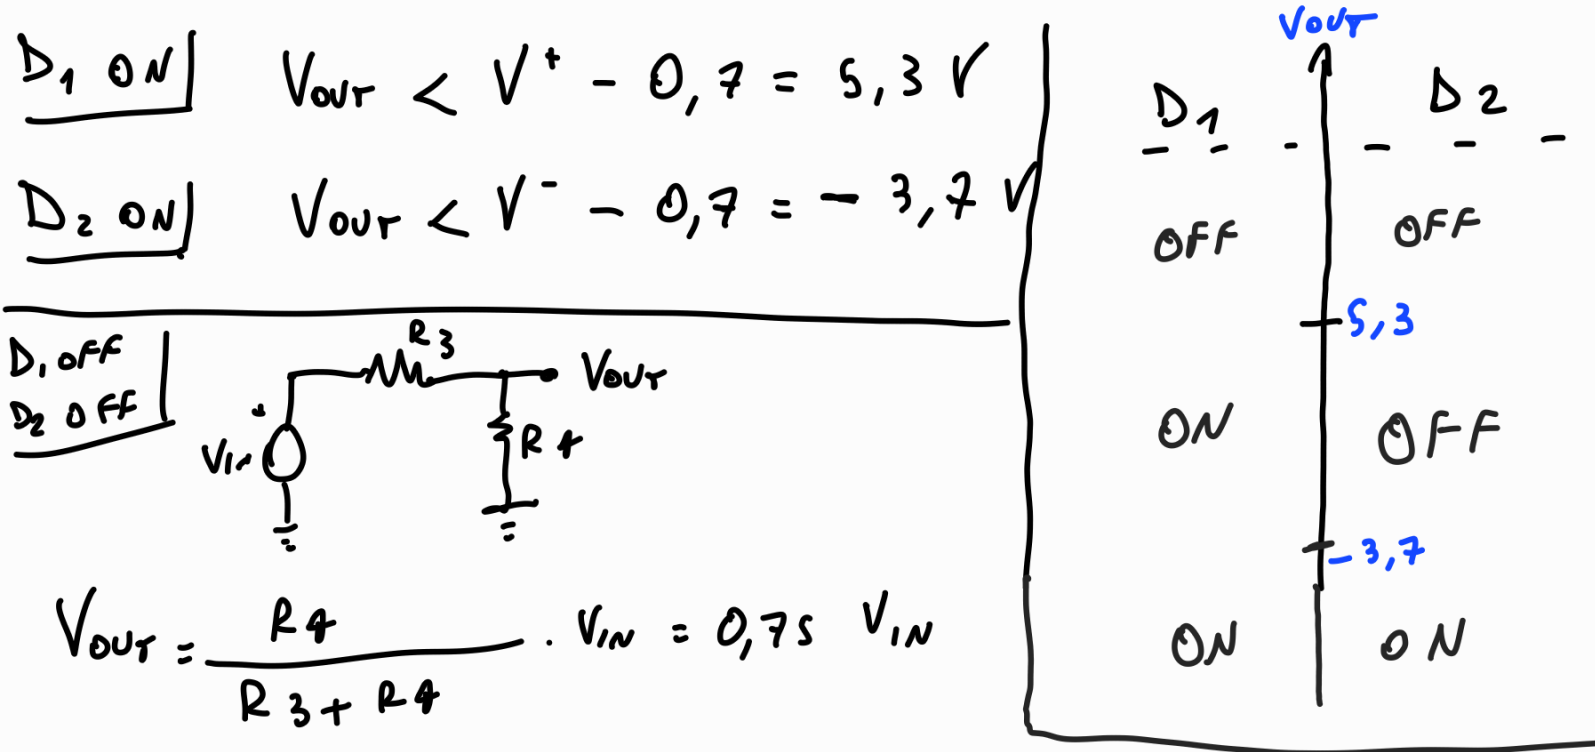 D1 ON VOUT < V+ - 0,7 = 5,3 V
D2 ON VOUT < V- - 0,7 = - 3,7 V
D1 OFF
D2 OFF
R3
VOUT
VIN
+
R4
VOUT = R4 / R3 + R4 . VIN = 0,75 VIN
VOUT
D1 D2
OFF OFF
5,3
ON OFF
-3,7
ON ON